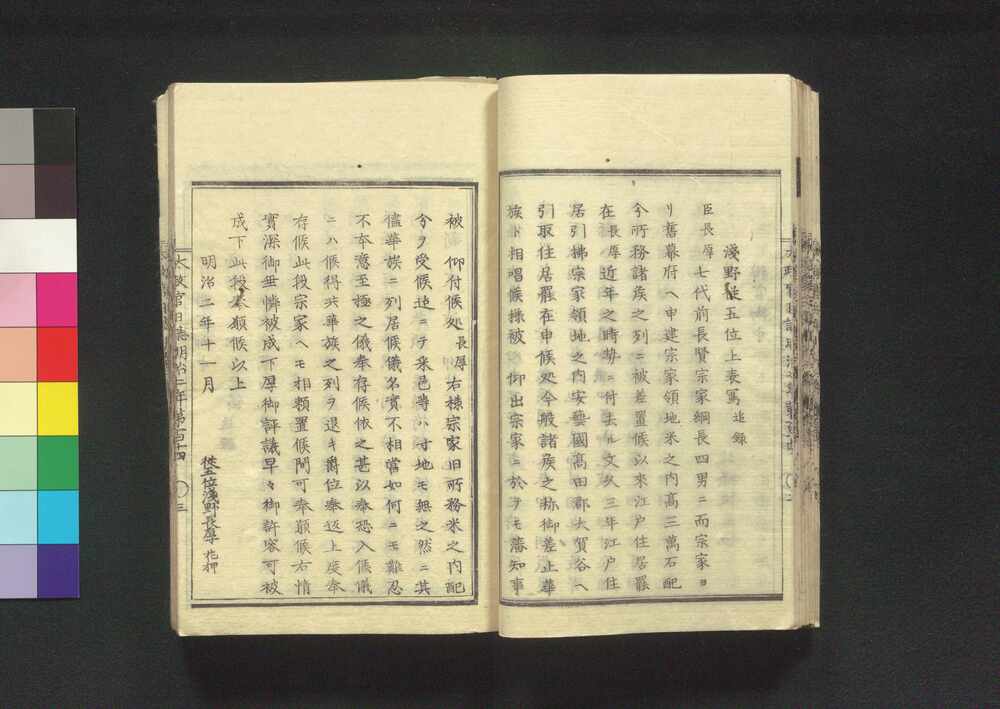 淺野從五位上表寫 追録
臣長厚七代前長賢宗家綱長四男ニ而宗家ヨ
リ舊幕府ヘ申建宗家領地米之内高三萬石配
分所務諸矦之列ニ被差置候以來江戸住居罷
在長厚近年之時勢ニ付去ル文久三年江戸住
居引拂宗家領地之内安藝國高田郡大賀谷ヘ
引取住居罷在申候処今般諸矦之称御差止華
族ト相唱候様被 仰出宗家ニ於テモ藩知事
被 仰付候処長厚右様宗家旧所務米之内配
分ヲ受候迠ニテ釆邑等ハ寸地モ無之然ニ其
儘華族ニ列居候儀名實不相當如何ニモ難忍
不本意至極之儀奉存候依之甚以奉恐入候儀
ニハ候得共華族之列ヲ退キ爵位奉返上度奉
存候此段宗家ヘモ相頼置候間可奉願候右情
實深御垂憐被成下厚御評議早々御許容可被
成下此段奉願候以上
明治二年十一月
從五位淺野長厚 花押
太政官日誌明治二年第百十四 三